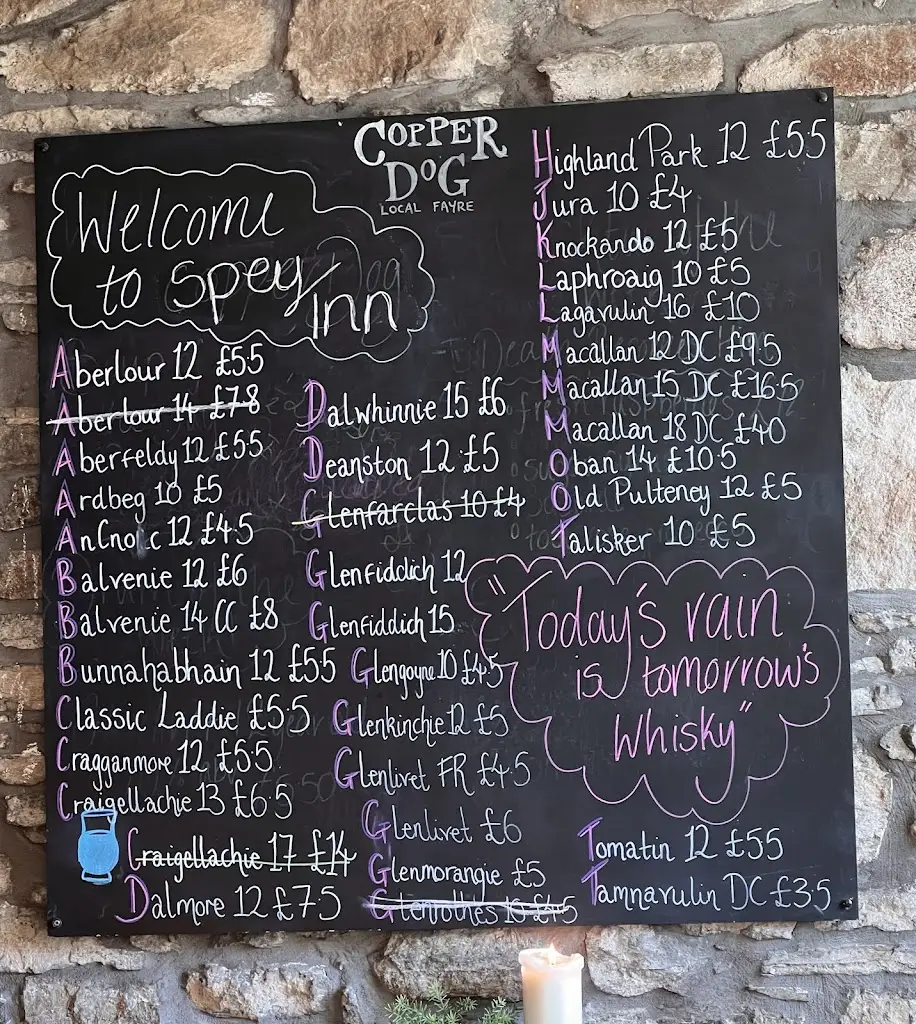 COPPER
DOG
LOCAL FAYRE
Welcome
to Spey
Inn
Aberlour 12 £5.5
Aberlour 14 £7.8
Aberfeldy 12 £5.5
Ardbeg 10 £5
AnCnoc 12 £4.5
Balvenie 12 £6
Balvenie 14 CC £8
Bunnahabhain 12 £5.5
Classic Laddie £5.5
Cragganmore 12 £5.5
Craigellachie 13 £6.5
Craigellachie 17 £14
Dalmore 12 £7.5
Dalwhinnie 15 £6
Deanston 12 £5
Glenfarclas 10 £4
Glenfiddich 12
Glenfiddich 15
Glengoyne 10 £4.5
Glenkinchie 12 £5
Glenlivet FR £4.5
Glenlivet £6
Glenmorangie £5
Glenrothes £4.5
Highland Park 12 £5.5
Jura 10 £4
Knockando 12 £5
Laphroaig 10 £5
Lagavulin 16 £10
Macallan 12 DC £9.5
Macallan 15 DC £16.5
Macallan 18 DC £40
Oban 14 £10.5
Old Pulteney 12 £5
Talisker 10 £5
"Today's rain
is tomorrow's
Whisky"
Tomatin 12 £5.5
Tamnavulin DC £3.5